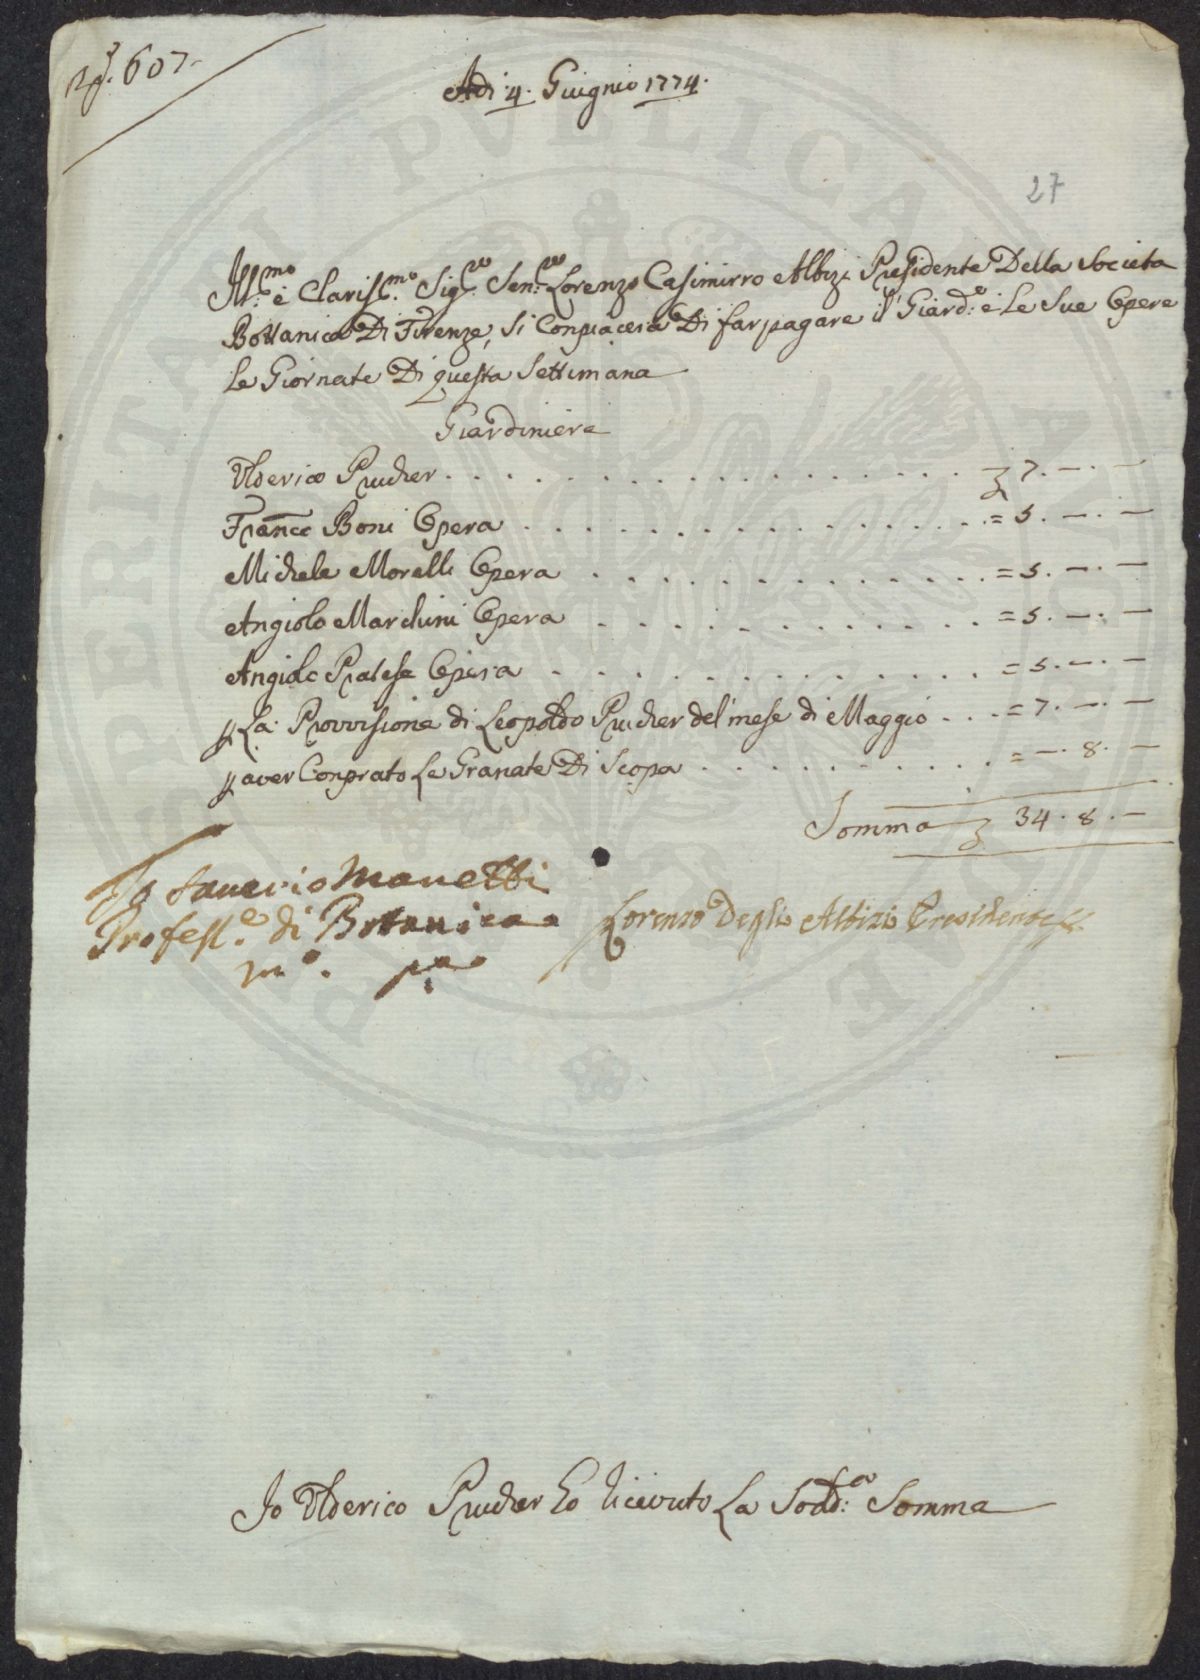 607.
Adi 4. Giugnio 1774.
27
Ill:mo e Clariss:mo Sig:re Sen:re Lorenzo Casimirro Albizi Presidente Della Societa
Bottanica Di Firenze, Si Conpiacera Di far pagare il Giard:e e Le Sue Opere
Le Giornate Di questa Settimana
Giardiniere
Ulderico Prucher . . . . . . . . . . . . . . . . . 7. —. —
Franco Boni Opera . . . . . . . . . . . . . . = 5. —. —
Michele Morelli Opera . . . . . . . . . . . . = 5. —. —
Angiolo Marchini Opera . . . . . . . . . . . = 5. —. —
Angiolo Pratese Opera . . . . . . . . . . . . = 5. —. —
p La Provvisione di Leopoldo Prucher del mese di Maggio . . . = 7. —. —
p aver Conprato Le Granate Di Scopa . . . . . . . . . . = —. 8. —
Somma 34. 8. —
Io Saverio Manetti
Profess:e di Botanica
m:o p:a
Lorenzo Degli Albizi Presidente
Io Ulderico Prucher ho riceuuto La Sodd:a Somma
PERITATI PVBLICAE